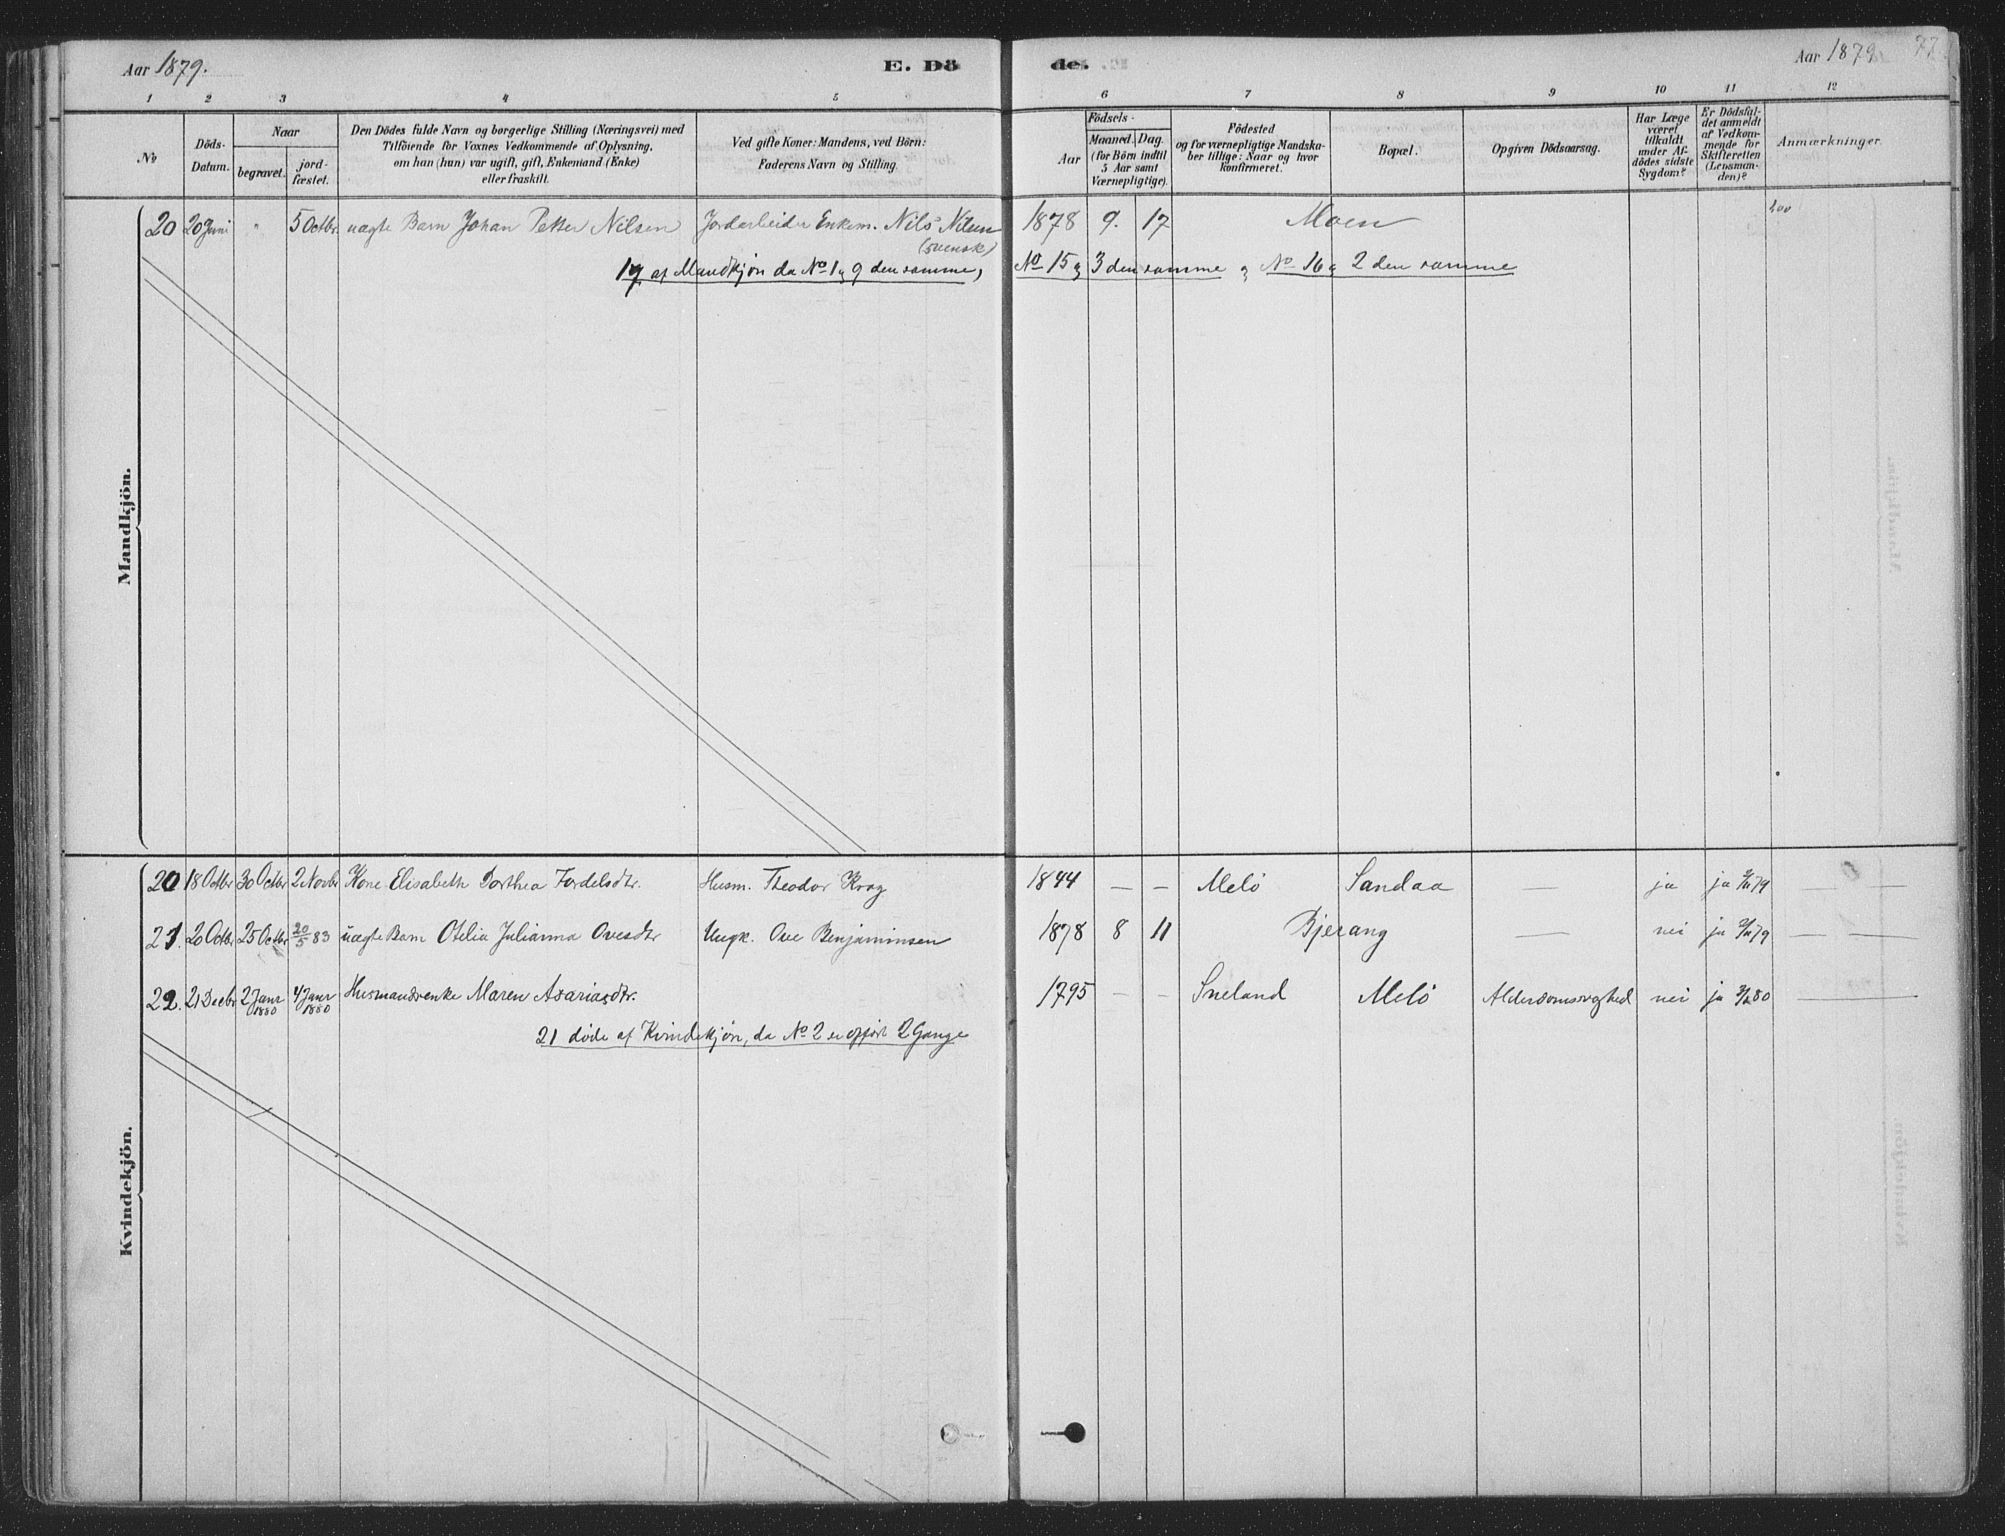 Aar 1879. E. Dö de. Aar 1879 77.
1 2 3 4 5 6 7 8 9 10 11 12
No
Döds-Datum.
Naar
begravet.
jord-fæstet.
Den Dödes fulde Navn og borgerlige Stilling (Næringsvei) med
Tilföiende for Voxnes Vedkommende af Oplysning,
om han (hun) var ugift, gift, Enkemand (Enke)
eller fraskilt.
Ved gifte Koner: Mandens, ved Börn:
Faderens Navn og Stilling.
Födsels-
Aar
Maaned. Dag.
(for Börn indtil
5 Aar samt
Værnepligtige).
Födested
og for værnepligtige Mandska-
ber tillige: Naar og hvor
konfirmeret.
Bopæl.
Opgiven Dödsaarsag.
Har Læge
været
tilkaldt
under Af-
dödes sidste
Sygdom?
Er Dödsfal-
det anmeldt
af Vedkom-
mende for
Skifteretten
(Lensman-
den)?
Anmærkninger.
Mandkjön.
20 20 Juni " 5 Octbr. uægte Barn Johan Petter Nilsen Jordarbeider Enkem. Nils Nilsen 1878 9. 17 Moen
(svensk)
17 af Mandkjøn da No 1 og 9 den samme, No 15 og 3 den samme og No 16 og 2 den samme
Kvindekjön.
20 18 Octbr 30 Octbr 2 Novbr Kone Elisabeth Dorthea Fordelsdtr. Husm. Theodor Krog 1844 — — Melö Sandaa — ja ja 79 — —
21. 20 Octbr 25 Octbr 20/5 83 uægte Barn Otelia Julianna Ovesdtr Ungk. Ove Benjaminsen 1878 8 11 Bjerang — nei ja 79 — —
22. 21 Decbr 2 Janr 1880 4 Janr 1880 Husmandsenke Maren Asariasdtr. 1795 — — Sneland Melö Alderdomssvaghed nei ja 80 —
21 døde af Kvindekjøn, da No 2 er opført 2 Gange